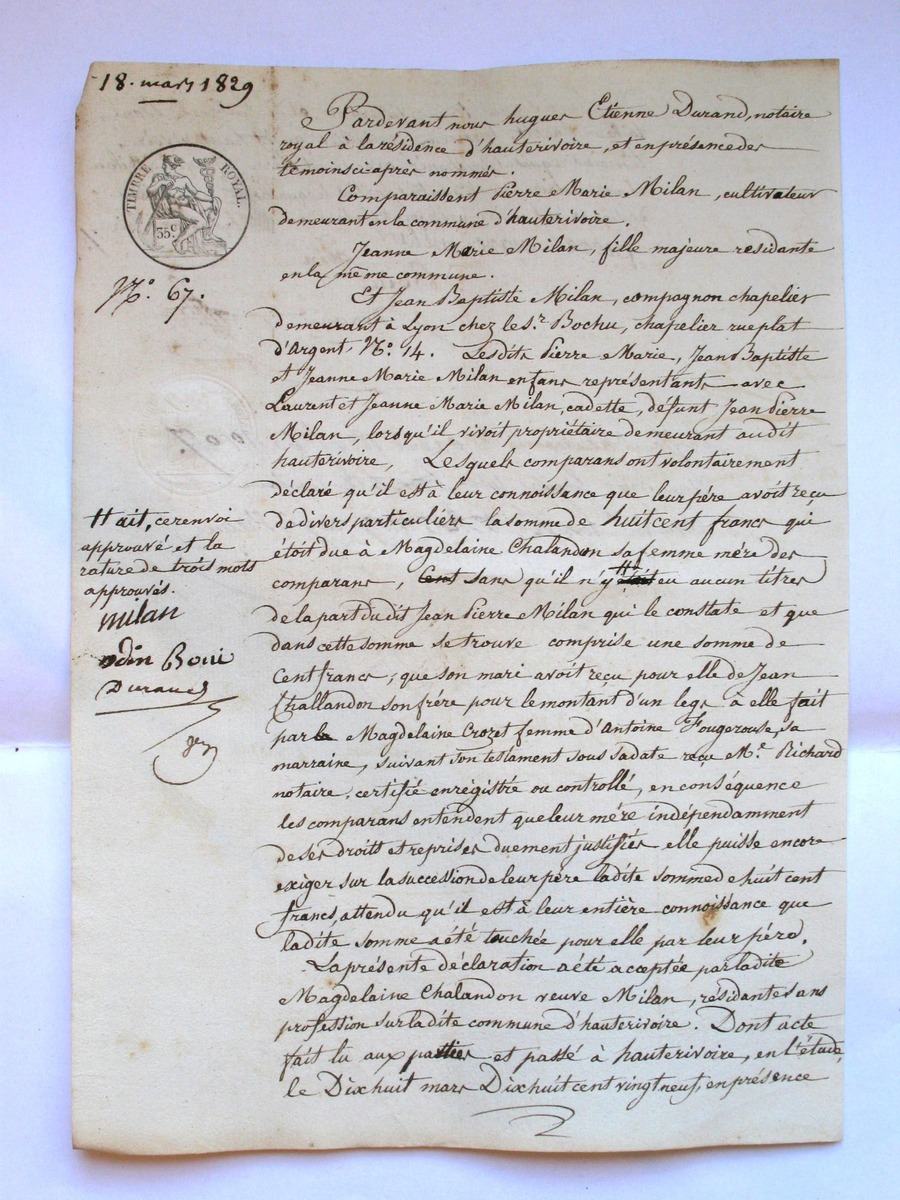 18. mars 1829
TIMBRE ROYAL.
35 c
N.º 67.
Pardevant nous hugues Etienne Durand, notaire
royal à la résidence d'hauterivoire, et en présence des
témoins ci-après nommés.
Comparaissent Pierre Marie Milan, cultivateur
demeurant en la commune d'hauterivoire.
Jeanne Marie Milan, fille majeure residante
en la même commune.
Et Jean Baptiste Milan, compagnon chapelier
demeurant à Lyon chez le S.r Bochu, chapelier rue plat
d'Argent, N.º 14. Lesdits Pierre Marie, Jean Baptiste
et Jeanne Marie Milan enfans représentants avec
Laurent et Jeanne Marie Milan, cadette, défunt Jean Pierre
Milan, lorsqu'il vivoit propriétaire demeurant audit
hauterivoire, Lesquels comparans ont volontairement
déclaré qu'il est à leur connoissance que leur père avoit reçu
de divers particuliers la somme de huit cent francs qui
étoit due à Magdelaine Chalandon sa femme mére des
comparans, Cent sans qu'il n'y eu aucun titres
de la part du dit Jean Pierre Milan qui le constate et que
dans cette somme se trouve comprise une somme de
Cent francs, que son mari avoit reçu pour elle de Jean
Challandon son frére pour le montant d'un legs à elle fait
par la Magdelaine Crozet femme d'Antoine Fougerouse, sa
marraine, suivant son testament sous sa date reçu M.e Richard
notaire, certifié enregistré ou controllé, en conséquence
les comparans entendent que leur mére indépendamment
de ses droits et reprises duement justifiés elle puisse encore
exiger sur la succession de leur père ladite somme de huit cent
francs, attendu qu'il est à leur entière connoissance que
ladite somme a été touchée pour elle par leur péré.
La présente déclaration a été acceptée par ladite
Magdelaine Chalandon veuve Milan, résidante sans
profession sur ladite commune d'hauterivoire. Dont acte
fait lu aux parties et passé à hauterivoire, en l'étude,
le Dix huit mars Dix huit cent vingt neuf, en présence
ait, ce renvoi
approuvé et la
rature de trois mots
approuvés.
milan
odin Boui
Durand